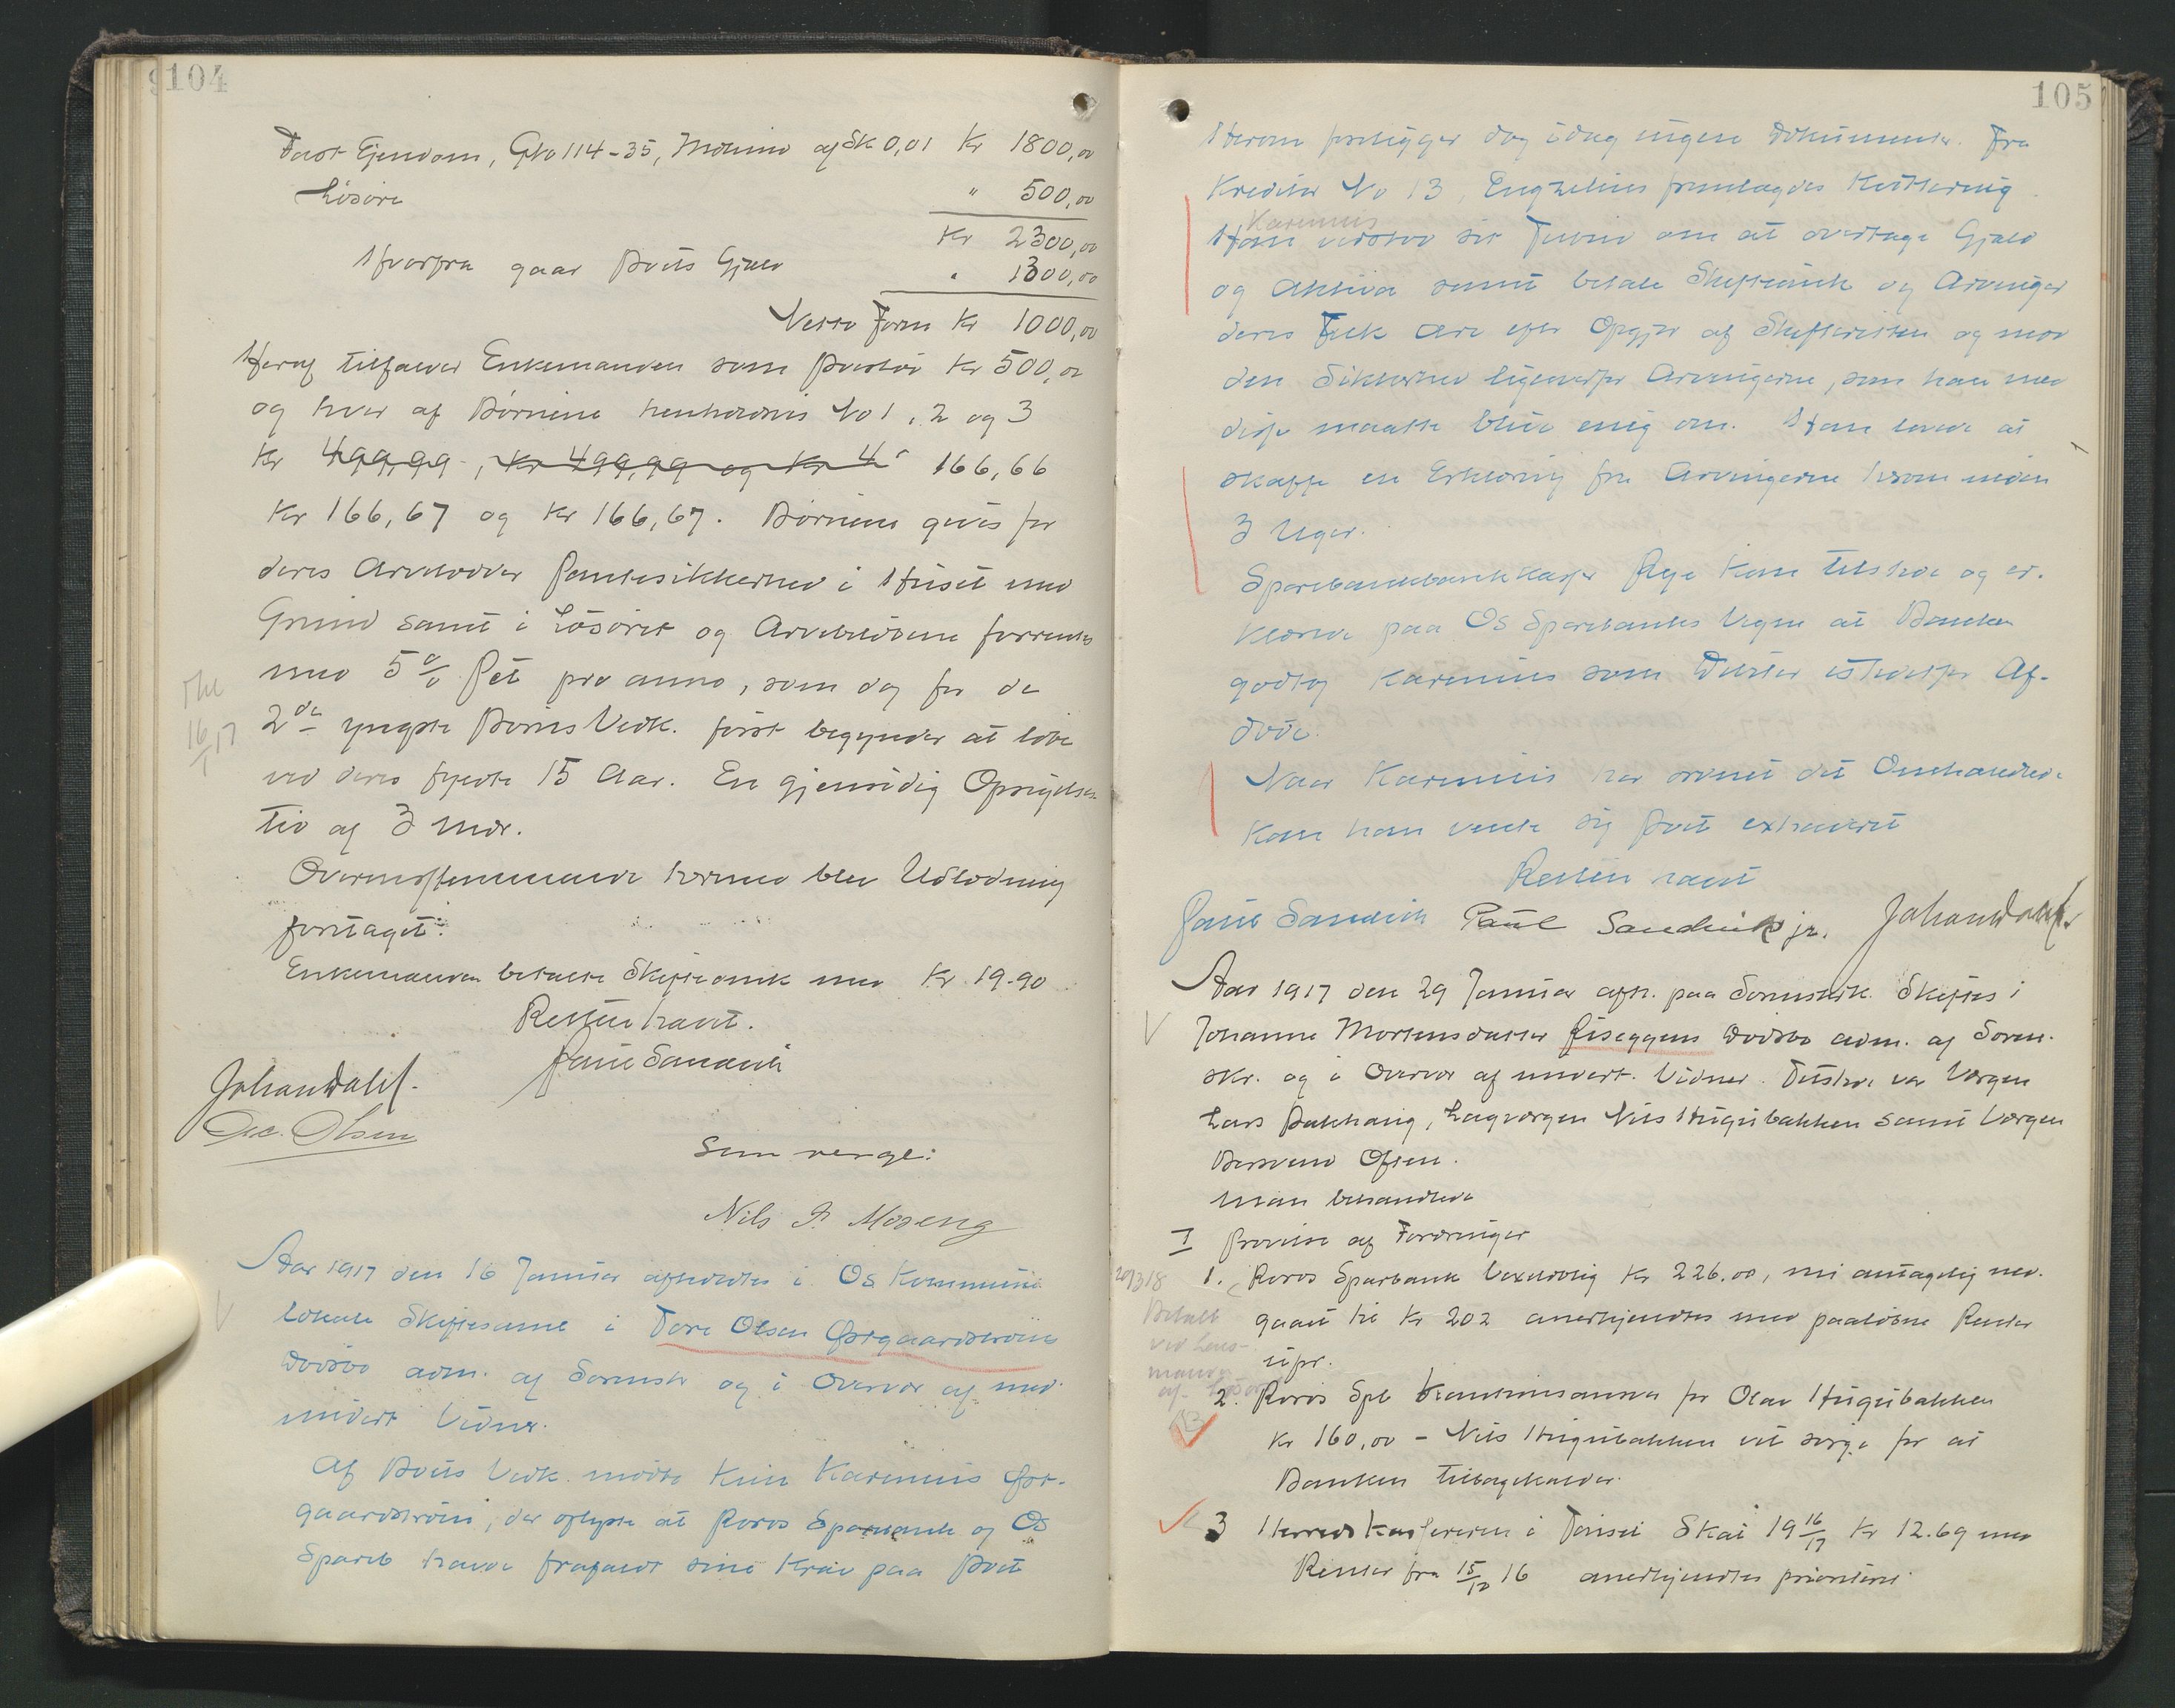 104
Fast Ejendom, Gbo 114-35, Molino af Sk 0,01 Kr 1800,00
Løsøre " 500,00
Kr 2300,00
Hvorfra gaar Boets Gjæld " 1300,00
Netto Form Kr 1000,00
Heraf tilfalder Enkemanden som Boslod Kr 500,00
og hver af Børnene henholdsvis No 1, 2 og 3
Kr 499,99, Kr 499,99 og Kr 4 166,66
Kr 166,67 og Kr 166,67. Børnene gives for
deres Arvelodder Pantesikkerhed i Huset med
Grund samt i Løsøret og Arvebeløbene forrentes
med 5 % Pct pro anno, som dog for de
2de yngste Børns Vedk. først begynder at løbe
ved deres fyldte 15 Aar. En gjensidig Opsigelses
tid af 3 Mdr.
Overensstemmende hermed blev Udlodning
foretaget.
Enkemanden betalte Skifteomk med Kr 19.90
Retten hævet.
Paul Sandvik
Johan Dahl.
Ole Olsen
Som verge:
Nils P. Moseng
16/1 17
Aar 1917 den 16 Januar afholdtes i Os Kommune
lokale Skiftesaml i Tore Olsen Østgaardstrøens
Dødsbo adm. af Sorensk og i Overvær af ned
undert Vidner.
Af Boets Vedk. mødte kun Karenius Øst-
gaardstrøen, der oplyste at Røros Sparebank og Os
Spareb havde frafaldt sine Krav paa Boet
105
Herom foreligger dog idag ingen Dokumenter. Fra
Kreditor No 13, Engzelius fremlagdes Kvittering
Karenius
Han vedstod sit Tilbud om at overtage Gjæld
og Aktiva samt betale Skifteomk og Arvinger
deres Arv efter Opgjør af Skifteretten og mod
den Sikkerhed ligeoverfor Arvingerne, som han med
disse maatte blive enig om. Han lovede at
skaffe en Erklæring fra Arvingerne herom inden
3 Uger.
Sparebankkasser Rye kom tilstede og er-
klærede paa Os Sparebanks Vegne at Banken
godtog Karenius som Debitor istedetfor Af-
døde.
Naar Karenius har ordnet det Omhandlede
kan han vente sig Boet extraderet
Retten hævet
Paul Sandvik Paul Sandvik jr. Johan Dahl.
Aar 1917 den 29 Januar afh. paa Sorenskrk. Skiftes i
Johanne Mortensdatter Riseggens Dødsbo adm. af Soren-
skr. og i Overvær af undert. Vidner. Tilstede var Værgen
Lars Bakhaug, Lagværgen Nils Hügubakken samt Værgen
Bersvend Olsen.
Man behandlede
I Prøvelse af Fordringer
1. Røros Sparbank Vexelobllig Kr 226.00, nu antagelig ned-
gaaet til Kr 202 anerkjendtes med paaløbne Renter
upr.
20/3 18
Betalt
ved Lens-
mand
2. Røros Spb Kautionsansvar for Olav Hügubakken
Kr 160,00 - Nils Hügubakken vil sørge for at
Banken tilbagekalder.
3 Herredskassereren i Tønset Skat 19 16/17 Kr 12.69 med
Renter fra 15/12 16 anerkjendtes prioritert.